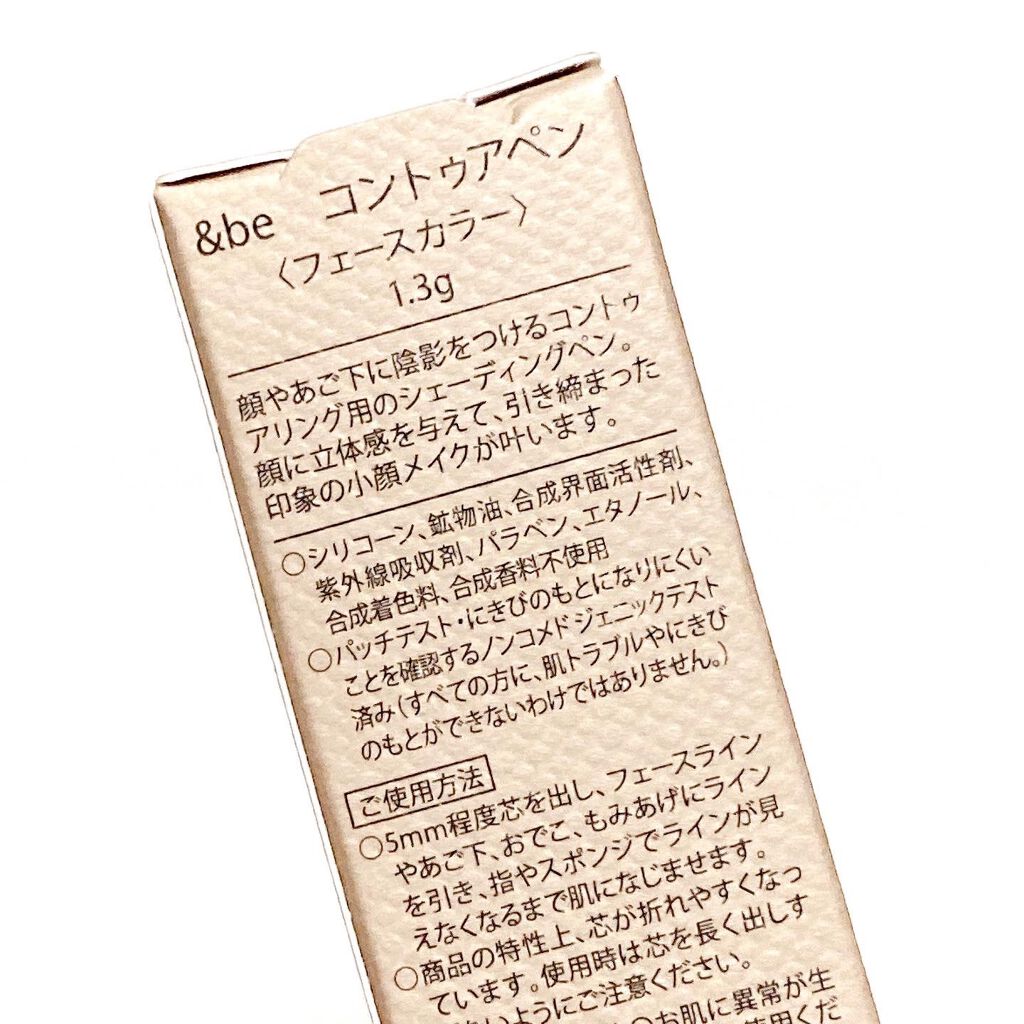 &be コントゥアペン
〈フェースカラー〉
1.3g
顔やあご下に陰影をつけるコントゥ
アリング用のシェーディングペン。
顔に立体感を与えて、引き締まった
印象の小顔メイクが叶います。
○シリコーン、鉱物油、合成界面活性剤、
紫外線吸収剤、パラベン、エタノール、
合成着色料、合成香料不使用
○パッチテスト・にきびのもとになりにくい
ことを確認するノンコメドジェニックテスト
済み(すべての方に、肌トラブルやにきび
のもとができないわけではありません。)
ご使用方法
○5mm程度芯を出し、フェースライン
やあご下、おでこ、もみあげにライン
を引き、指やスポンジでラインが見
えなくなるまで肌になじませます。
○商品の特性上、芯が折れやすくなっ
ています。使用時は芯を長く出しす
ないようにご注意ください。
○お肌に異常が生
使用くだ